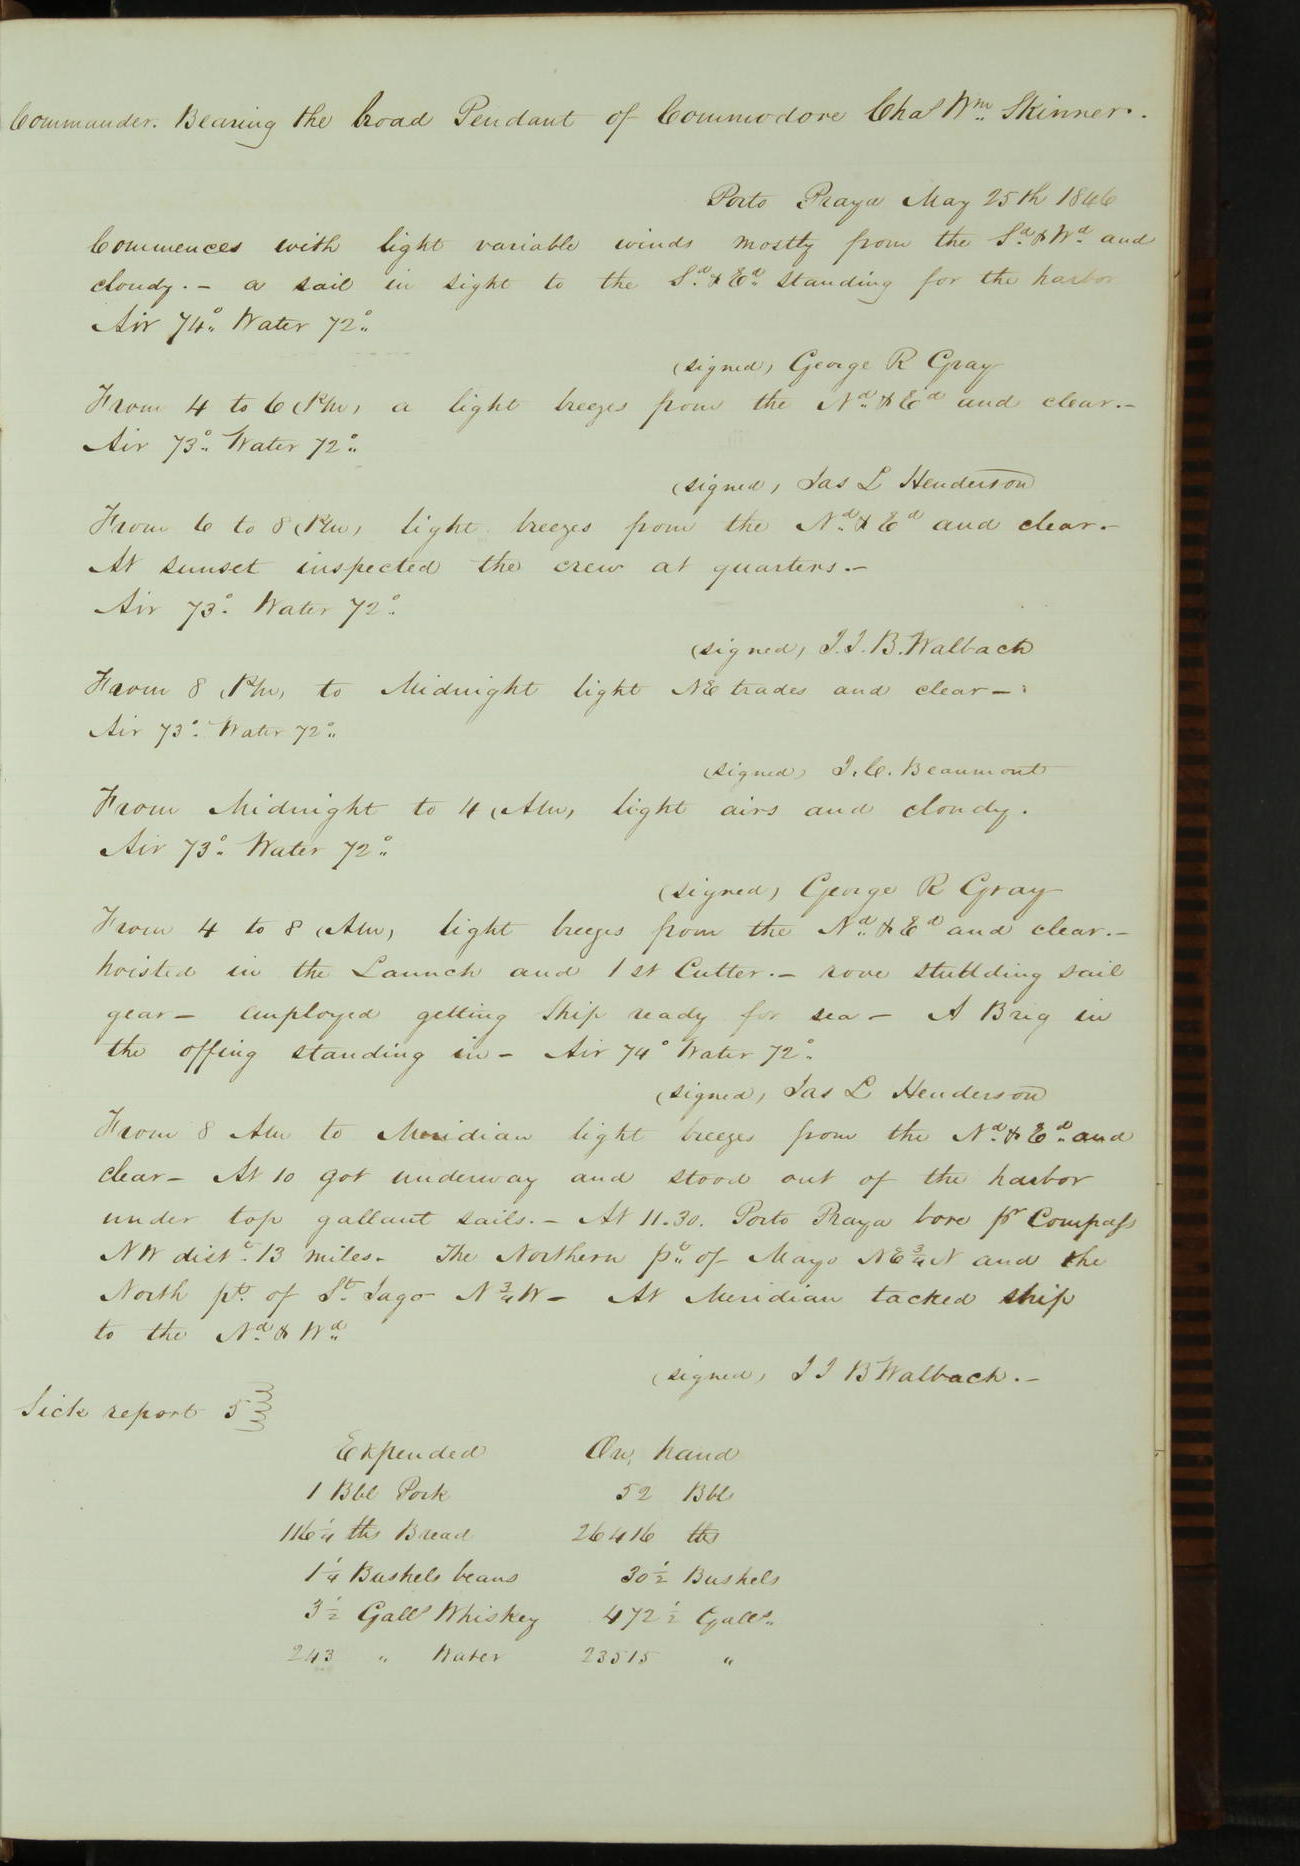 Commander. Bearing the broad Pendant of Commodore Chas Wm. Skinner.
Porto Praya May 25th 1846
Commences with light variable winds mostly from the Sd. & Wd. and
cloudy. - a sail in sight to the Sd. & Ed. standing for the harbor
Air 74° Water 72°
(signed) George R Gray
From 4 to 6 (P.M.) a light breezes from the Nd. & Ed and clear. -
Air 73° Water 72°
(signed) Jas L Henderson
From 6 to 8 (P.M.) light breezes from the Nd. & Ed and clear. -
At sunset inspected the crew at quarters. -
Air 73° Water 72°
(signed) J.J.B. Walbach
From 8 (P.M.) to Midnight light NE trades and clear -
Air 73° Water 72°
(signed) J.C. Beaumont
From Midnight to 4 (AM) light airs and cloudy.
Air 73° Water 72°
(signed) George R Gray
From 4 to 8 (AM) light breezes from the Nd. & Ed and clear. -
hoisted in the Launch and 1st Cutter. - rove studding sail
gear - employed getting Ship ready for sea - A Brig in
the offing standing in - Air 74° Water 72°
(signed) Jas L Henderson
From 8 AM to Meridian light breezes from the Nd. & Ed. and
clear - At 10 got underway and stood out of the harbor
under top gallant sails. - At 11.30. Porto Praya bore pr Compass
NW distce. 13 miles. The Northern pt. of Mayo NE 3/4 N and the
North pt. of St. Jago N 3/4 W - At Meridian tacked ship
to the Nd. & Wd.
(signed) J J B Walbach. -
Sick report 5
Expended On hand
1 Bbl Pork 52 Bbls
116 1/4 lbs Bread 26416 lbs
1 1/4 Bushels beans 30 1/2 Bushels
3 1/2 Galls Whiskey 472 1/2 Galls.
243 " Water 23515 "